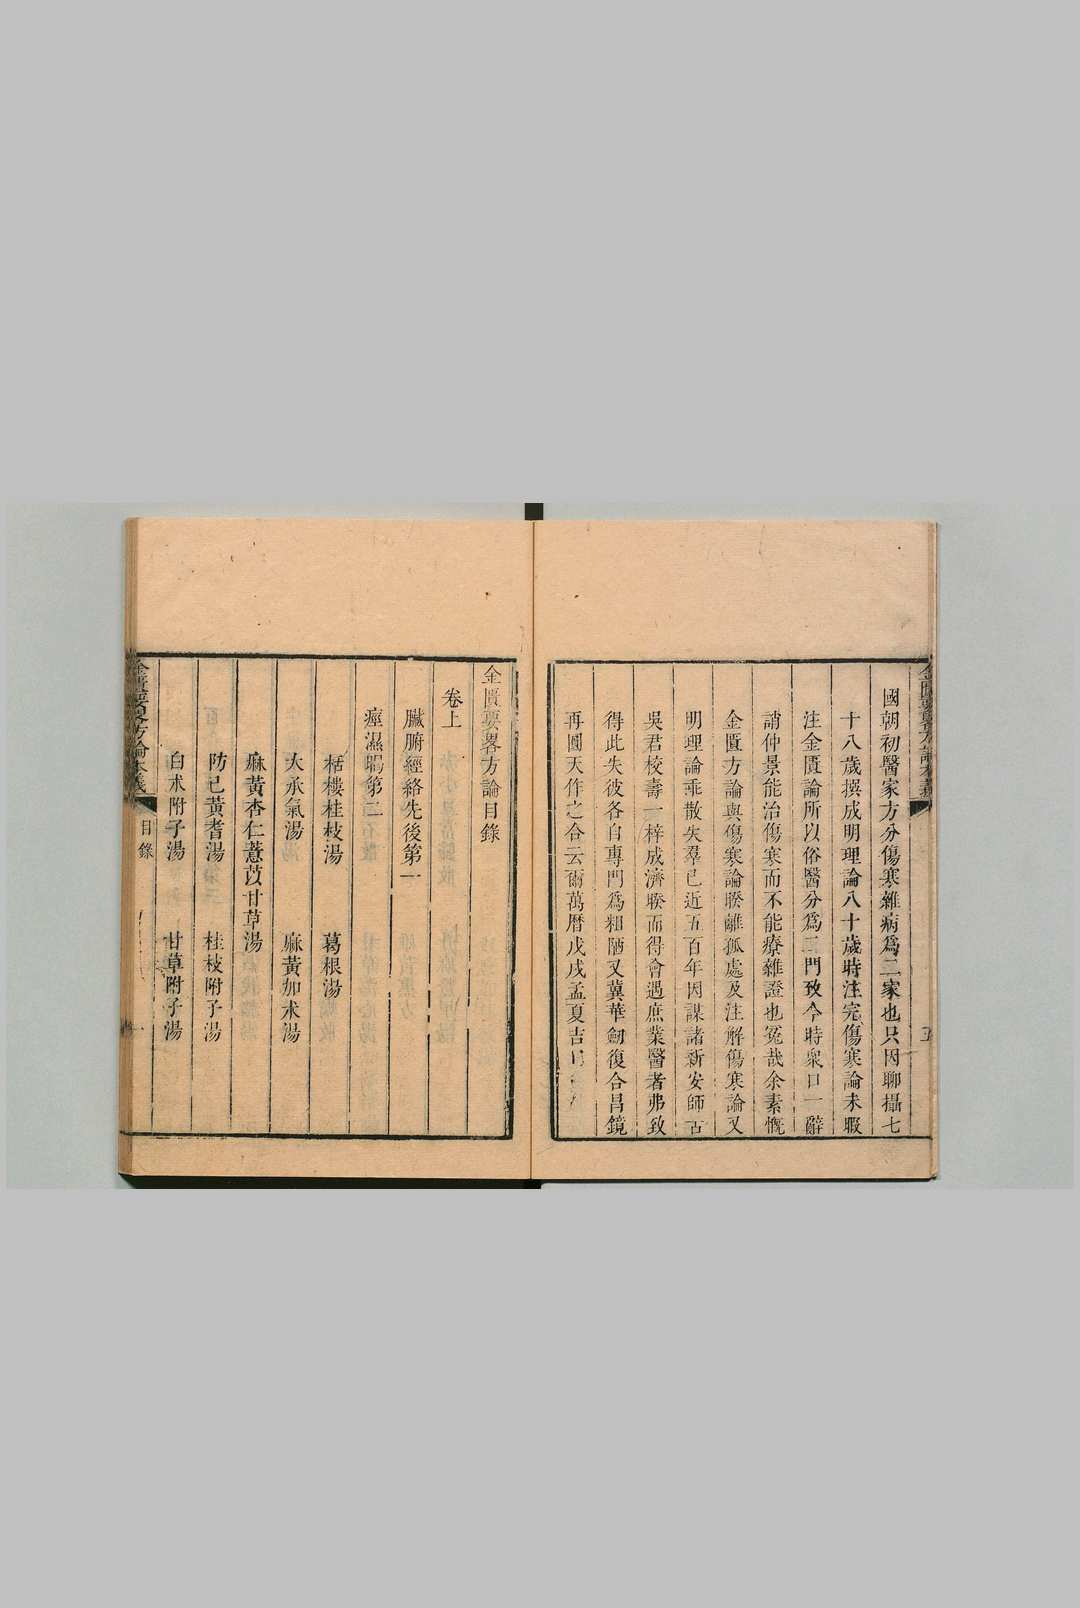 國朝初醫家方分傷寒雜病爲二家也只因聊攝七
十八歲撰成明理論八十歲時注完傷寒論未暇
注金匱論所以俗醫分爲二門致今時衆口一辭
誚仲景能治傷寒而不能療雜證也冤哉余素慨
金匱方論與傷寒論睽離孤處及注解傷寒論又
明理論乖散失羣已近五百年因謀諸新安師古
吳君校壽一梓成濟睽而得會遇庶業醫者弗致
得此失彼各自專門爲粗陋又冀華劒復合昌鏡
再圓天作之合云爾萬曆戊戌孟夏吉
金匱要畧方論目錄
卷上
臟腑經絡先後第一
痙濕暍第二
栝樓桂枝湯 葛根湯
大承氣湯 麻黃加术湯
麻黃杏仁薏苡甘草湯
防己黃耆湯 桂枝附子湯
白术附子湯 甘草附子湯
目錄
一